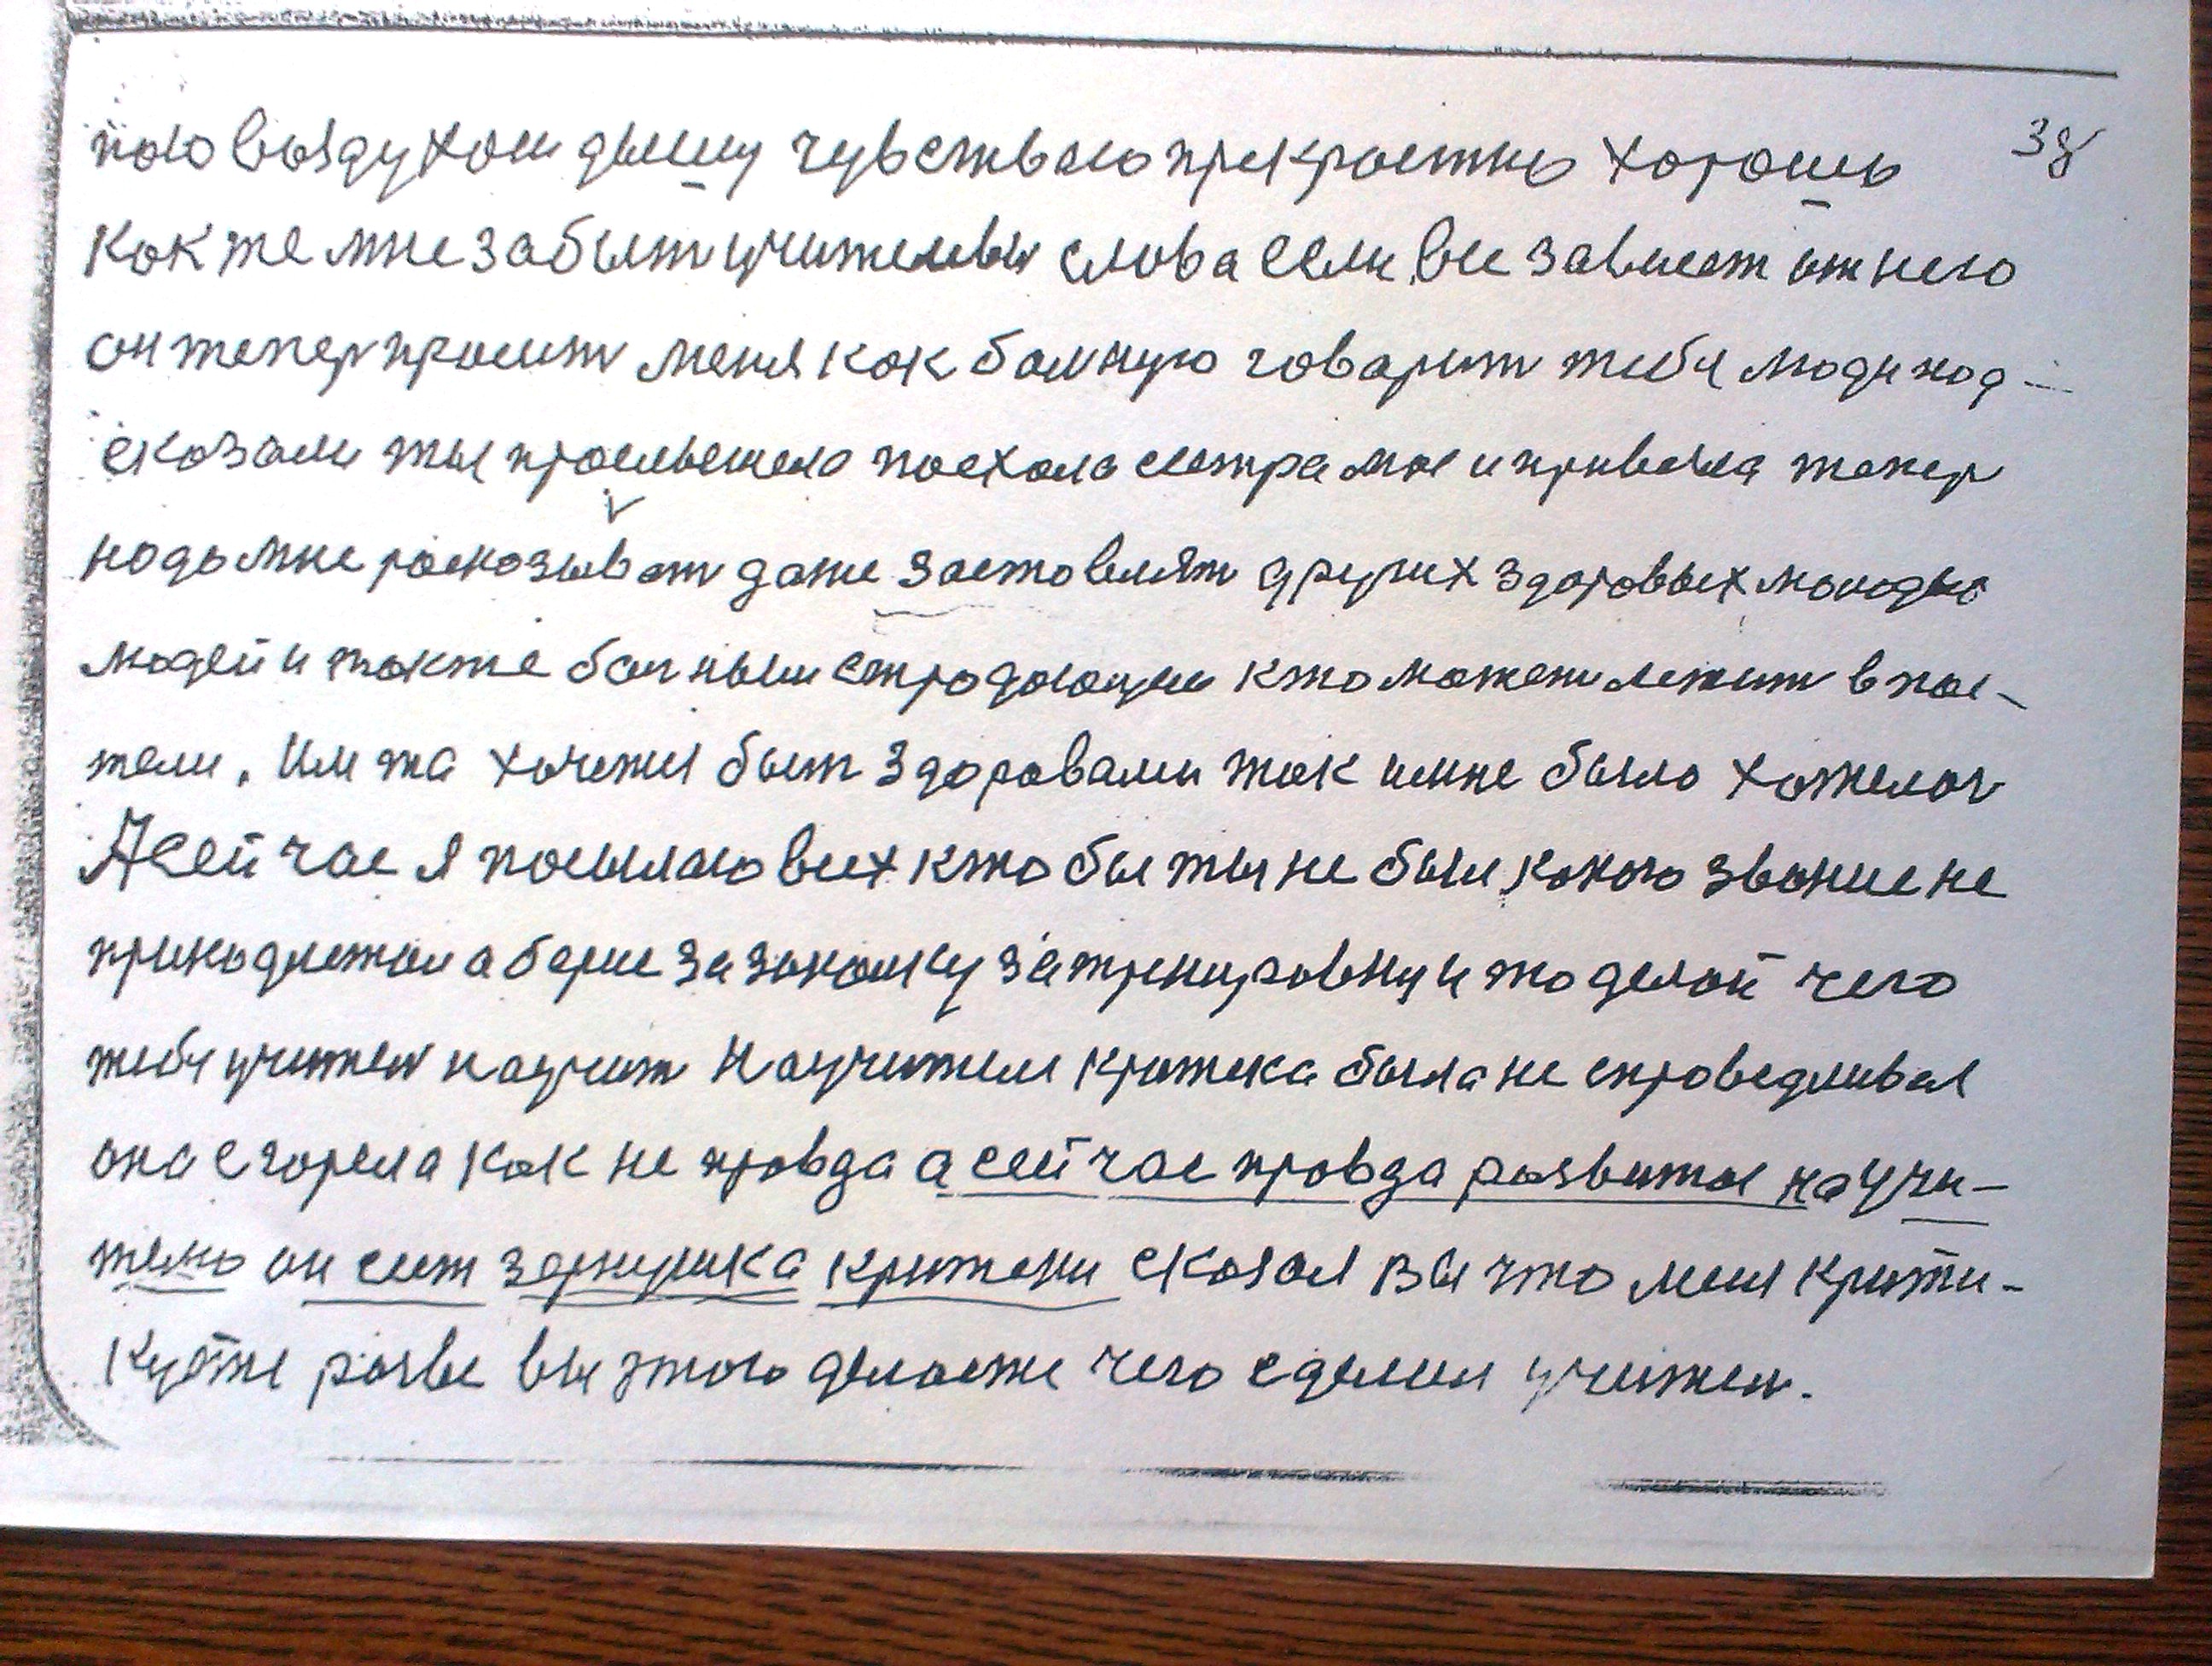 пою воздухом дышу чувствою прекрастно хорошо 38
Как же мне забыт учителевы слова если все зависет от него
он тепер просит меня как болную говарит тебя люди под-
сказали ты прослышела поехала сестра мое и привезла тепер
надо мне расказыват даже заставлят других здоровых молодых
людей и также болныи страдающии кто может лежит в пос-
тели. Им жа хочетя быт здоровами так и мне было хателос
А сейчас я посылаю всех кто бы ты не был каково звание не
принадлежал а берис за закалку за тренировку и то делай чего
тебя учител научит На учителя критека была не справедливая
она сгорела как не правда а сейчас правда развитое на учи-
теля он сеит зернушка критеки сказал Вы что меня крити-
куете разве вы этого делаете чего сделал учител.